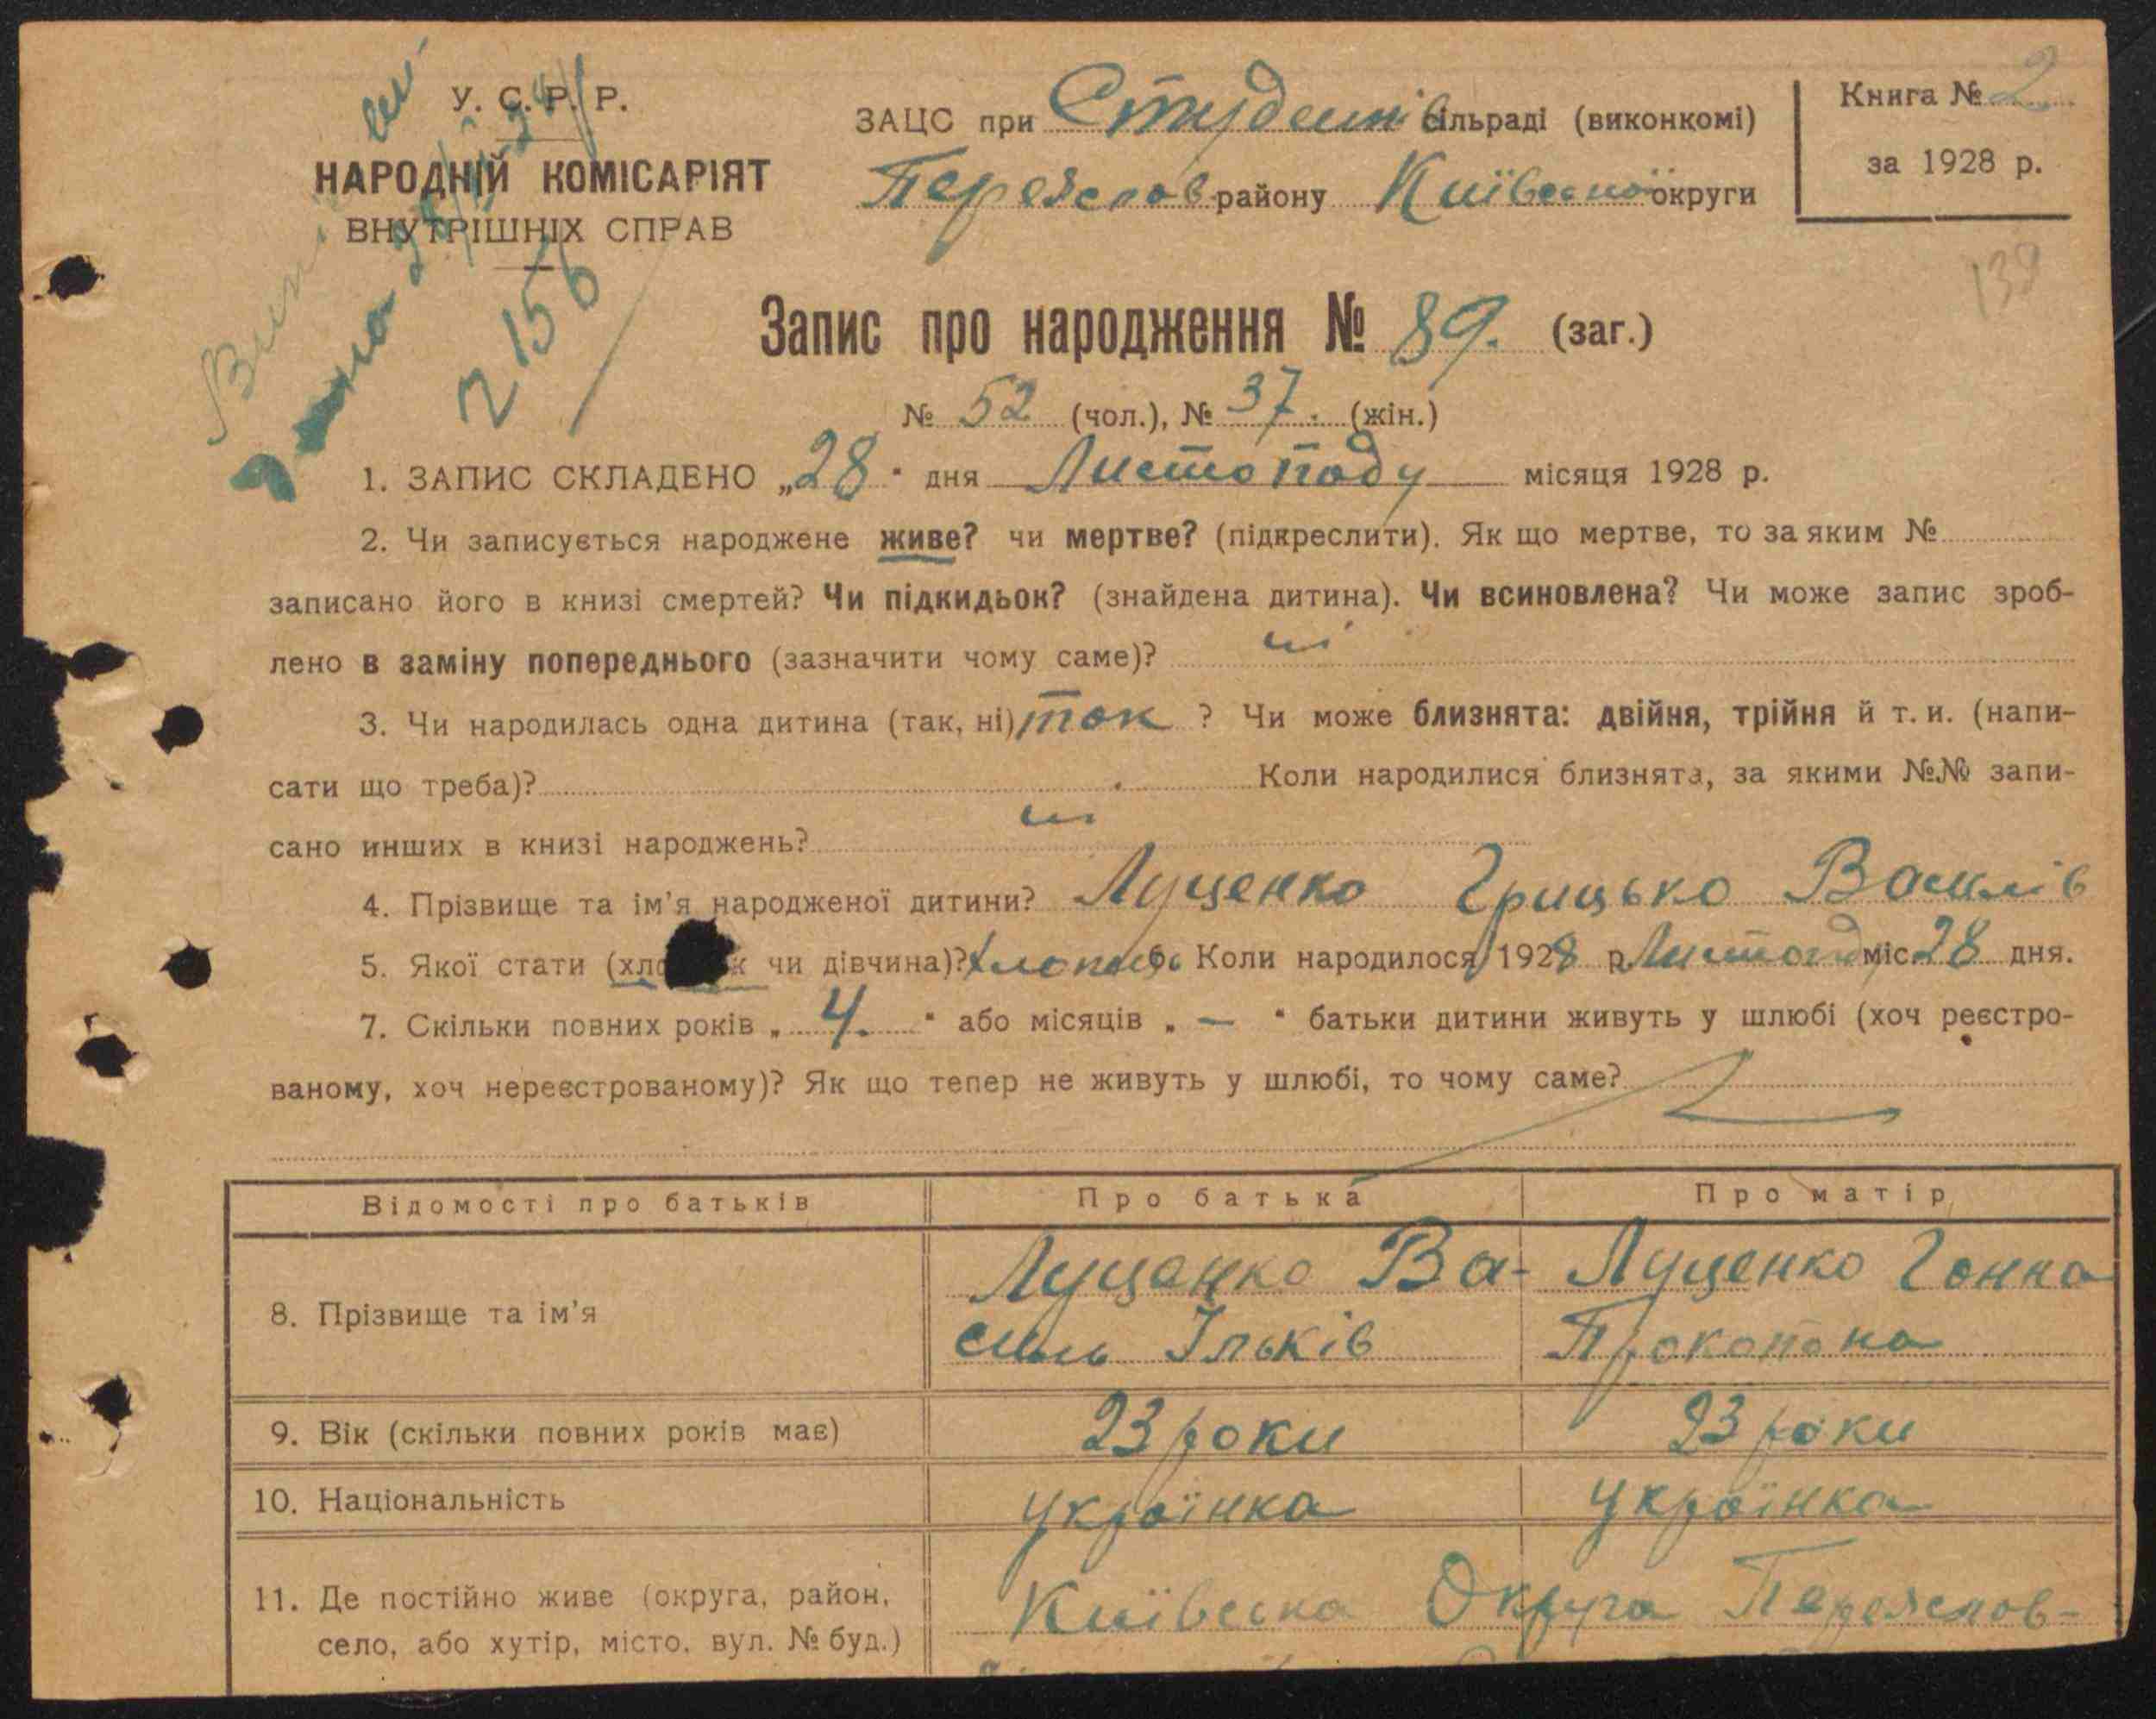 У. С. Р. Р.
НАРОДНІЙ КОМІСАРІЯТ
ВНУТРІШНІХ СПРАВ
2156
ЗАЦС при Студенків сільраді (виконкомі)
Переяслов району Київської округи
Книга № 2
за 1928 р.
138
Запис про народження № 89. (заг.)
№ 52 (чол.), № 37. (жін.)
1. ЗАПИС СКЛАДЕНО „28" дня Листопаду місяця 1928 р.
2. Чи записується народжене живе? чи мертве? (підкреслити). Як що мертве, то за яким №
записано його в книзі смертей? Чи підкидьок? (знайдена дитина). Чи всиновлена? Чи може запис зроб-
лено в заміну попереднього (зазначити чому саме)? ні
3. Чи народилась одна дитина (так, ні) так ? Чи може близнята: двійня, трійня й т. и. (напи-
сати що треба)? Коли народилися близнята, за якими №№ запи-
сано инших в книзі народжень? ні
4. Прізвище та ім'я народженої дитини? Луценко Грицько Василів
5. Якої стати (хло к чи дівчина)? Хлопець Коли народилося 1928 р. Листопаду міс. 28 дня.
7. Скільки повних років „ 4. " або місяців „ — " батьки дитини живуть у шлюбі (хоч реєстро-
ваному, хоч нереєстрованому)? Як що тепер не живуть у шлюбі, то чому саме?
Відомості про батьків Про батька Про матір
8. Прізвище та ім'я Луценко Ва- Луценко Ганна
силь Ільків Прокопона
9. Вік (скільки повних років має) 23 роки 23 роки
10. Національність українка українка
11. Де постійно живе (округа, район, Київська Округа Переяслов-
село, або хутір, місто, вул. № буд.)